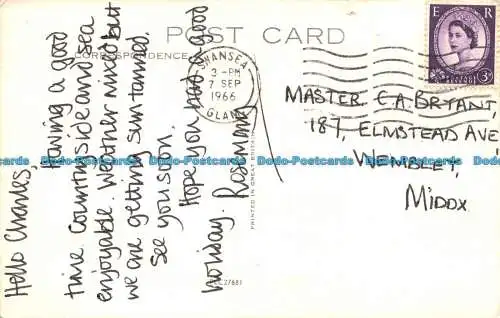 POST CARD
CORRESPONDENCE
Hello Charles,
Having a good
time. Countryside and sea
enjoyable. Weather mild but
we are getting sun tanned.
See you soon.
Hope you had a good
holiday. Rosemary
SWANSEA
3 - PM
7 SEP
1966
GLAM
E R
3D
MASTER. C.A. BRYANT,
187, ELMSTEAD AVE
WEMBLEY,
MIDDX.
PRINTED IN GREAT BRITAIN
Dodo-Postcards.com Dodo-Postcards.com Dodo-Postcards.com Dodo-Postcards.com